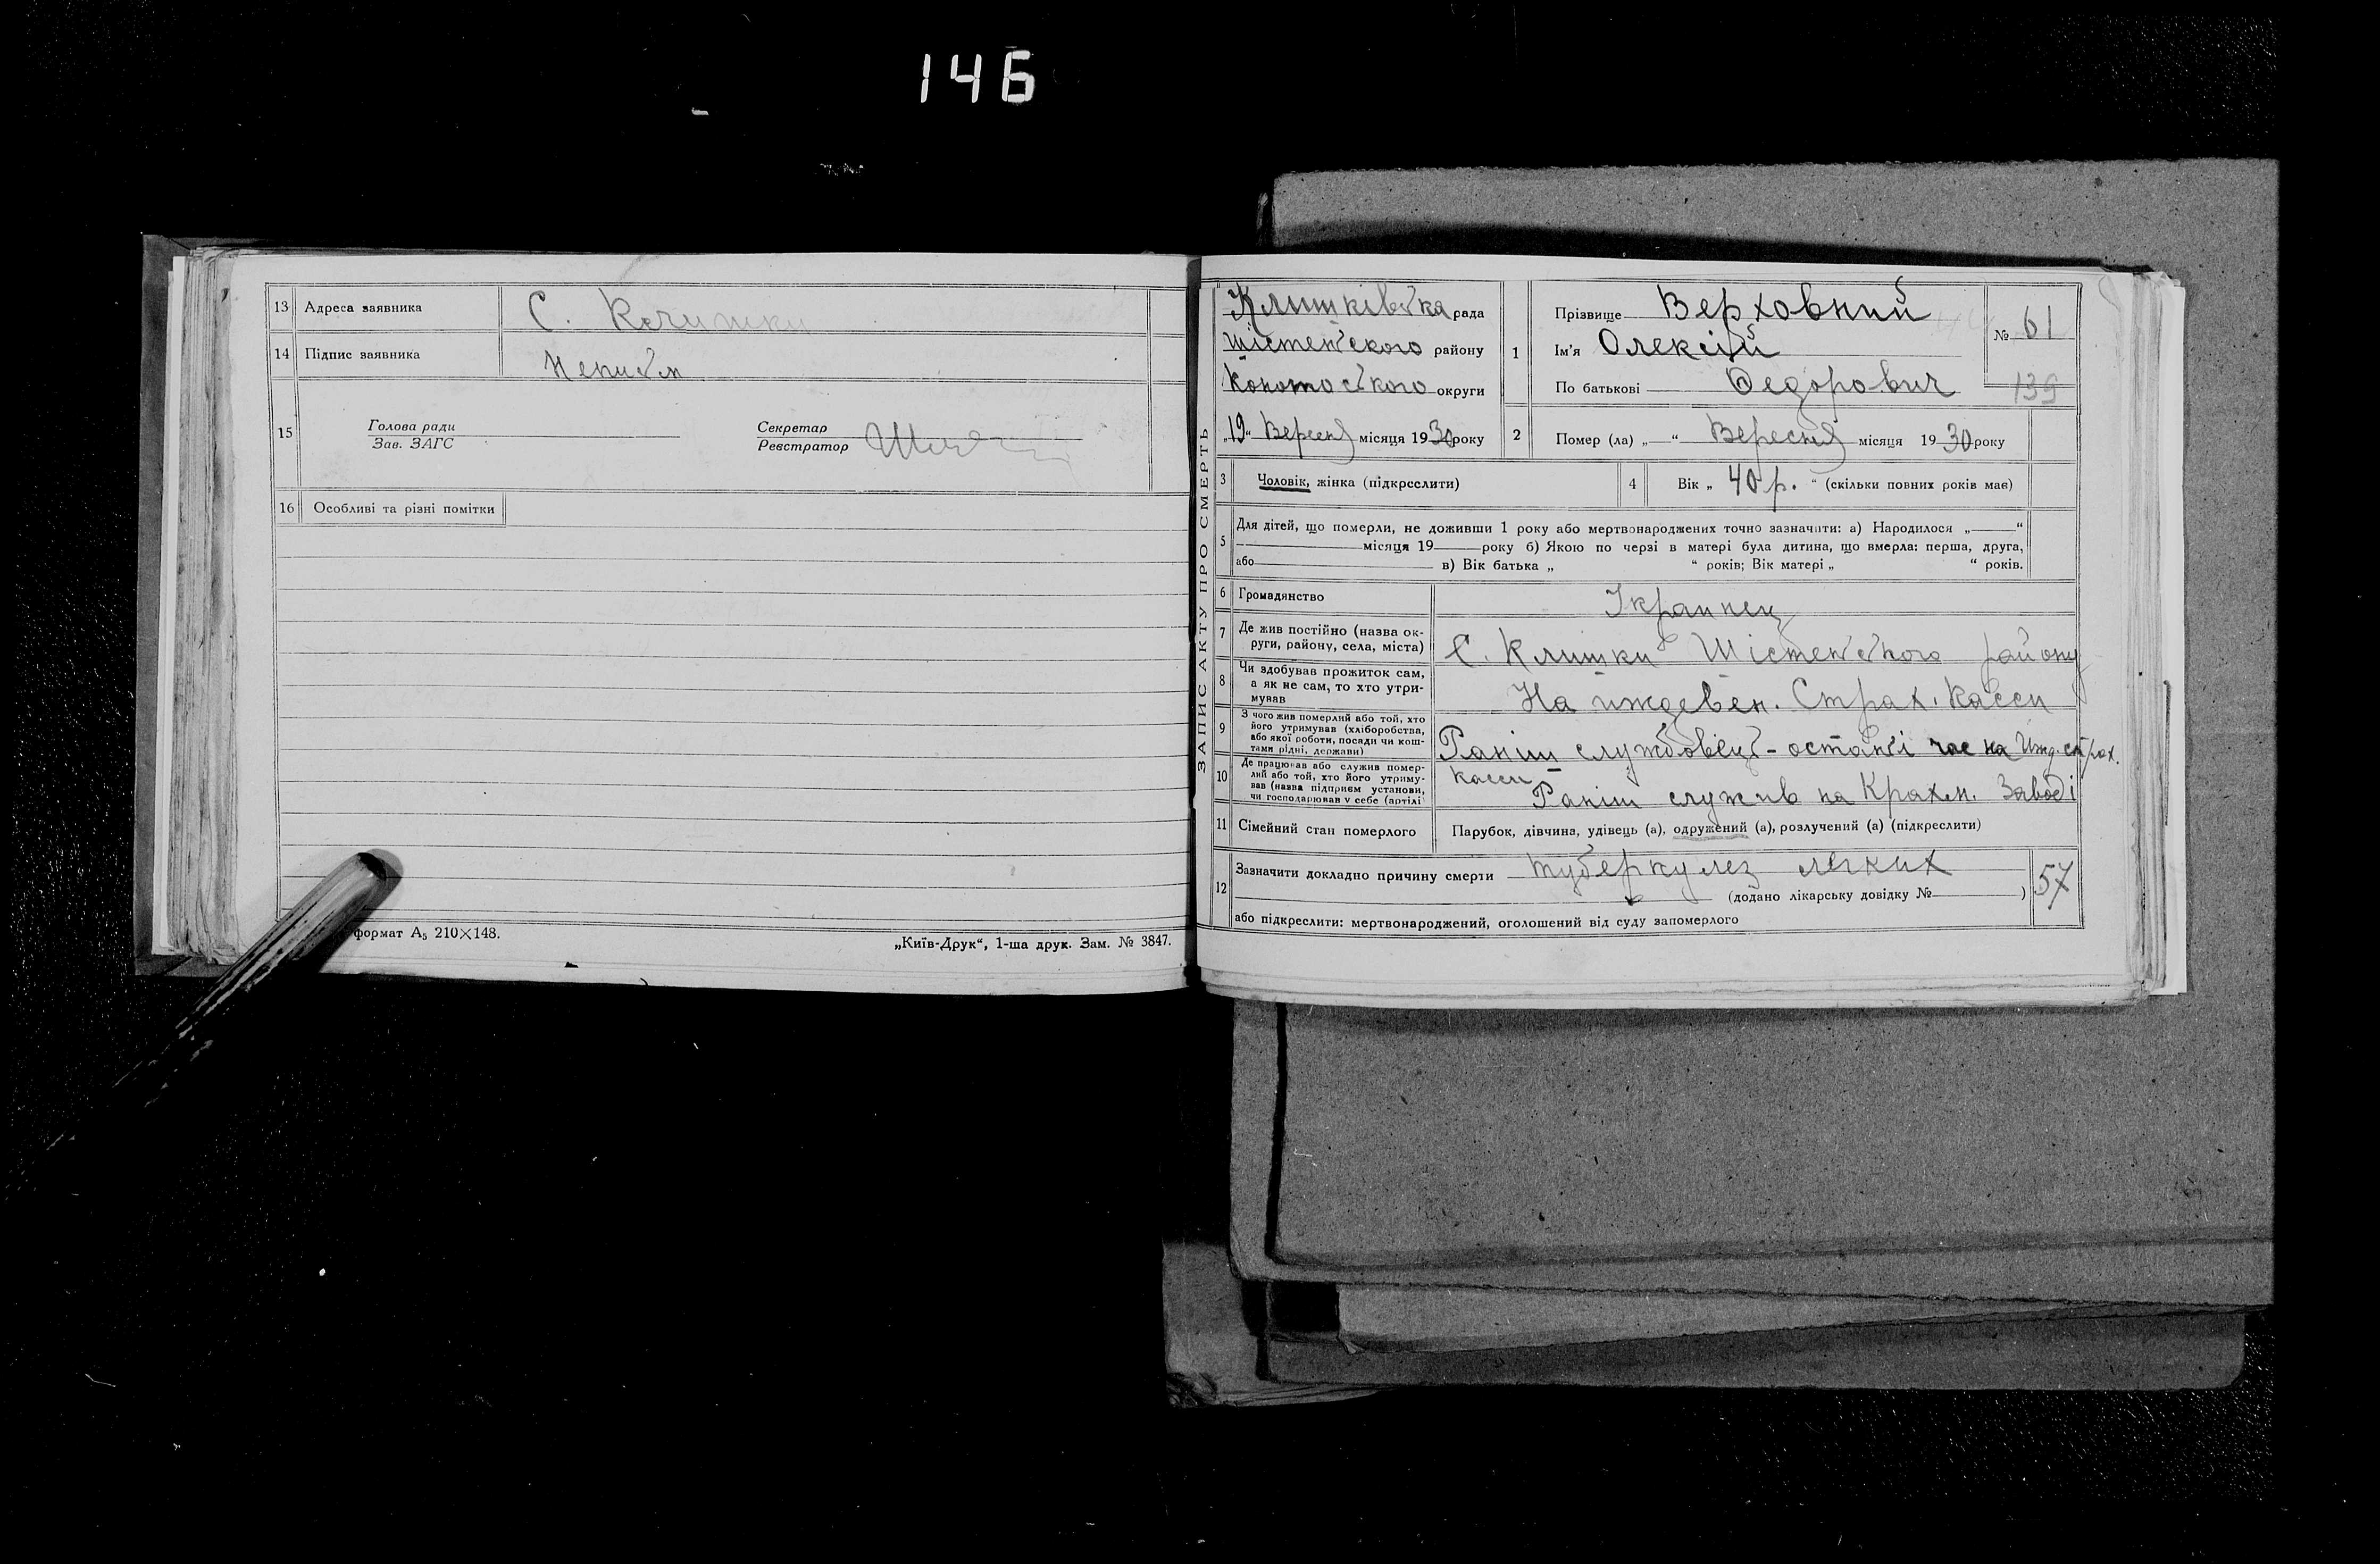 146
13 Адреса заявника С. Клишки
14 Підпис заявника Неписьм
15 Голова ради
Зав. ЗАГС
Секретар
Реєстратор
16 Особливі та різні помітки
формат А5 210×148.
„Київ-Друк“, 1-ша друк. Зам. № 3847.
ЗАПИС АКТУ ПРО СМЕРТЬ
Клишківська рада
Шістенського району
Конотоського округи
„19“ Вересня місяця 1930 року
1 Прізвище Верховний
Ім’я Олексій
По батькові Федорович
№ 61
139
2 Помер (ла) „—“ Вересня місяця 1930 року
3 Чоловік, жінка (підкреслити)
4 Вік „40 р.“ (скільки повних років має)
5 Для дітей, що померли, не доживши 1 року або мертвонароджених точно зазначити: а) Народилося „ “
місяця 19 року б) Якою по черзі в матері була дитина, що вмерла: перша, друга,
або в) Вік батька „ “ років; Вік матері „ “ років.
6 Громадянство Украинец
7 Де жив постійно (назва ок-
руги, району, села, міста) С. Клишки Шістенського району
8 Чи здобував прожиток сам,
а як не сам, то хто утри-
мував На иждевен. Страх. Касси
9 З чого жив померлий або той, хто
його утримував (хліборобства,
або якої роботи, посади чи кош-
тами рідні, держави) Раніш службовець - останні час на Ижд. страх.
Касси
10 Де працював або служив помер-
лий або той, хто його утриму-
вав (назва підприєм установи,
чи господарював у себе (артілі) Раніш служив на Крахм. Заводі
11 Сімейний стан померлого Парубок, дівчина, удівець (а), одружений (а), розлучений (а) (підкреслити)
12 Зазначити докладно причину смерти туберкулез легких
(додано лікарську довідку № )
або підкреслити: мертвонароджений, оголошений від суду запомерлого
57